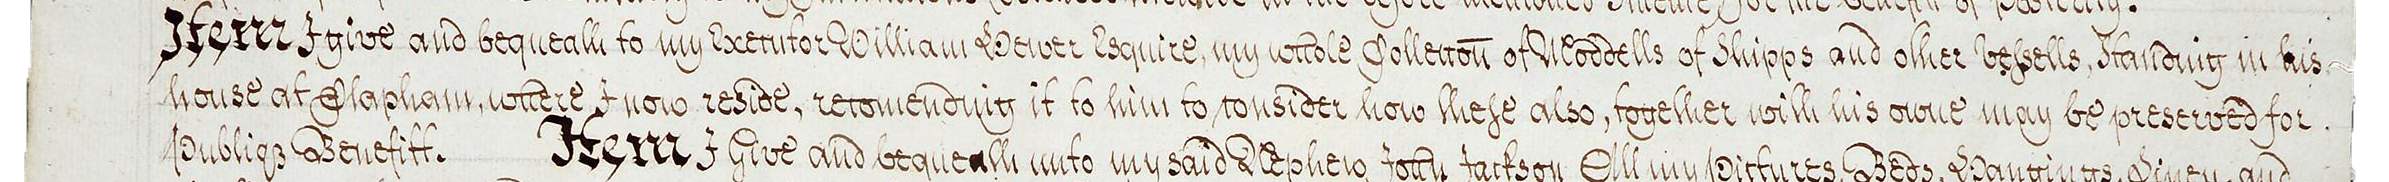 before mentioned Intent for the benefit of Posterity.
Item I give and bequeath to my Executor William Hewer Esquire, my whole Collection of Moddells of Shipps and other vessells, Standing in his
house at Clapham, where I now reside, recomending it to him to consider how these also, together with his owne may be preserved for
Publiq Benefitt. Item I Give and bequeath unto my said Nephew John Jackson All my Pictures, Beds, Hangings, Linen, and